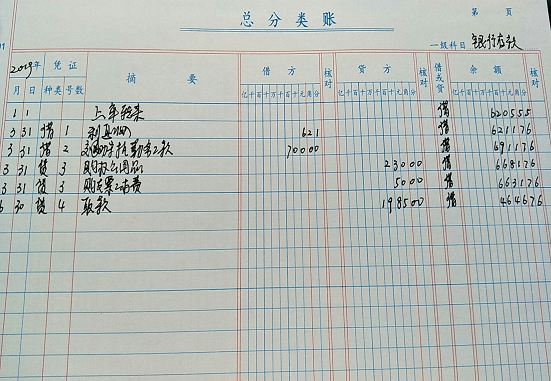 总分类账
第 页
一级科目 银行存款
2019年 凭证 摘要 借方 核对 贷方 核对 借或贷 余额
月 日 种类 号数 亿千百十万千百十元角分 亿千百十万千百十元角分 亿千百十万千百十元角分
1 1 上年结余 借 620555
3 31 借 1 利息 621 借 621176
3 31 借 2 款 70000 借 691176
3 31 贷 3 购办公用品 23000 借 668176
3 31 贷 3 购 费 5000 借 663176
6 30 贷 4 取款 198500 借 464676